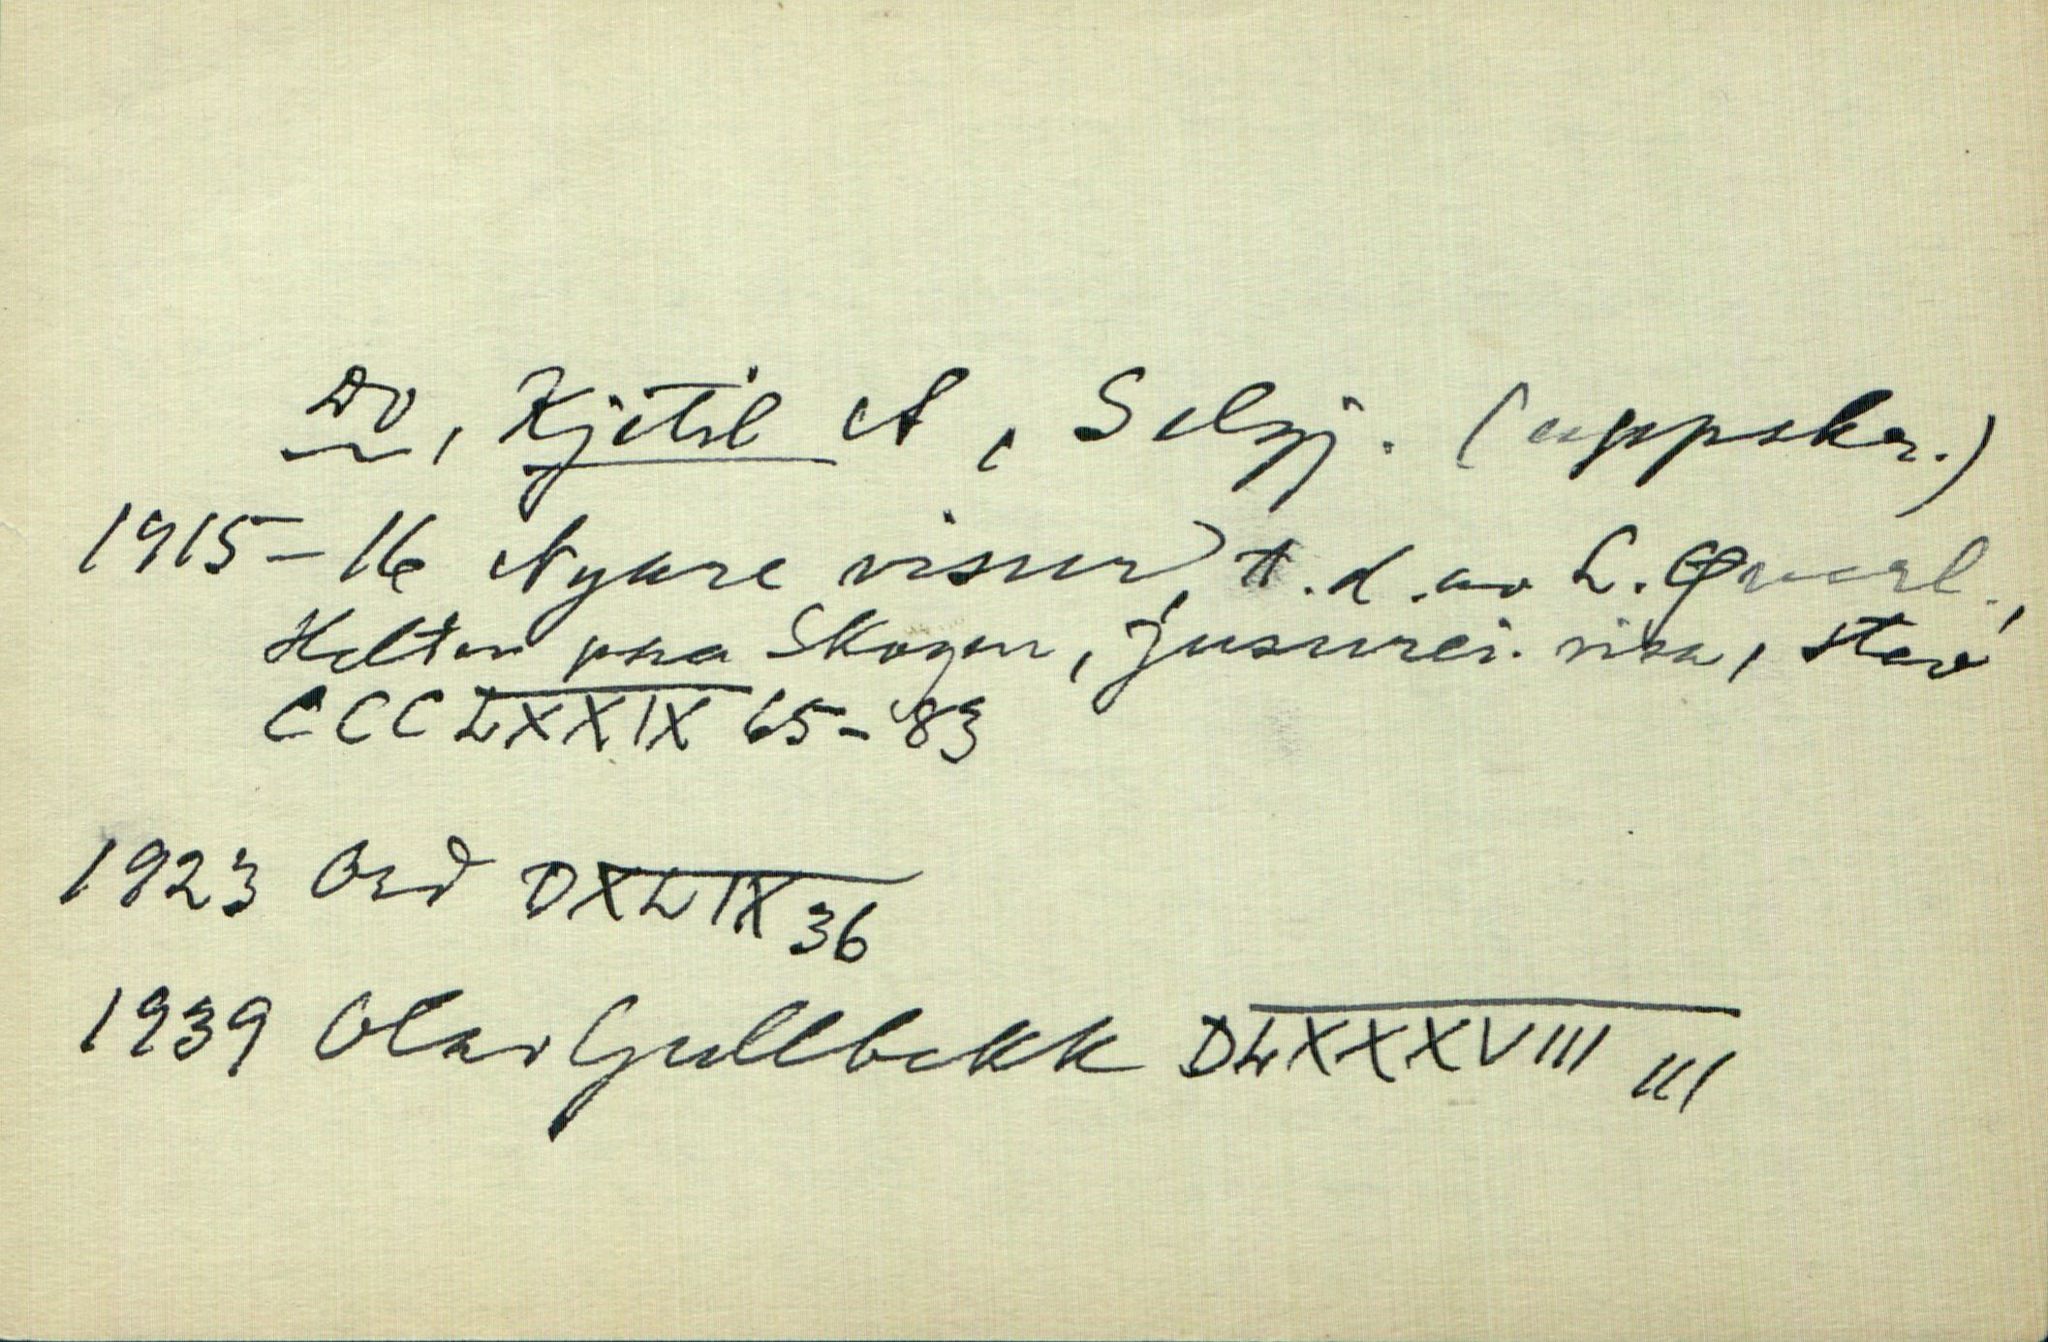 Do, Kjetil A, Selj. (uppskr.)
1915-16 Nyare visur, t.d. av L. Qverl.,
Helten paa Skogen, Jusurei. visa, stev
CCCLXXIX 65-83
1923 Ord DXLIX 36
1939 Olav Gullbekk DLXXXVIII III